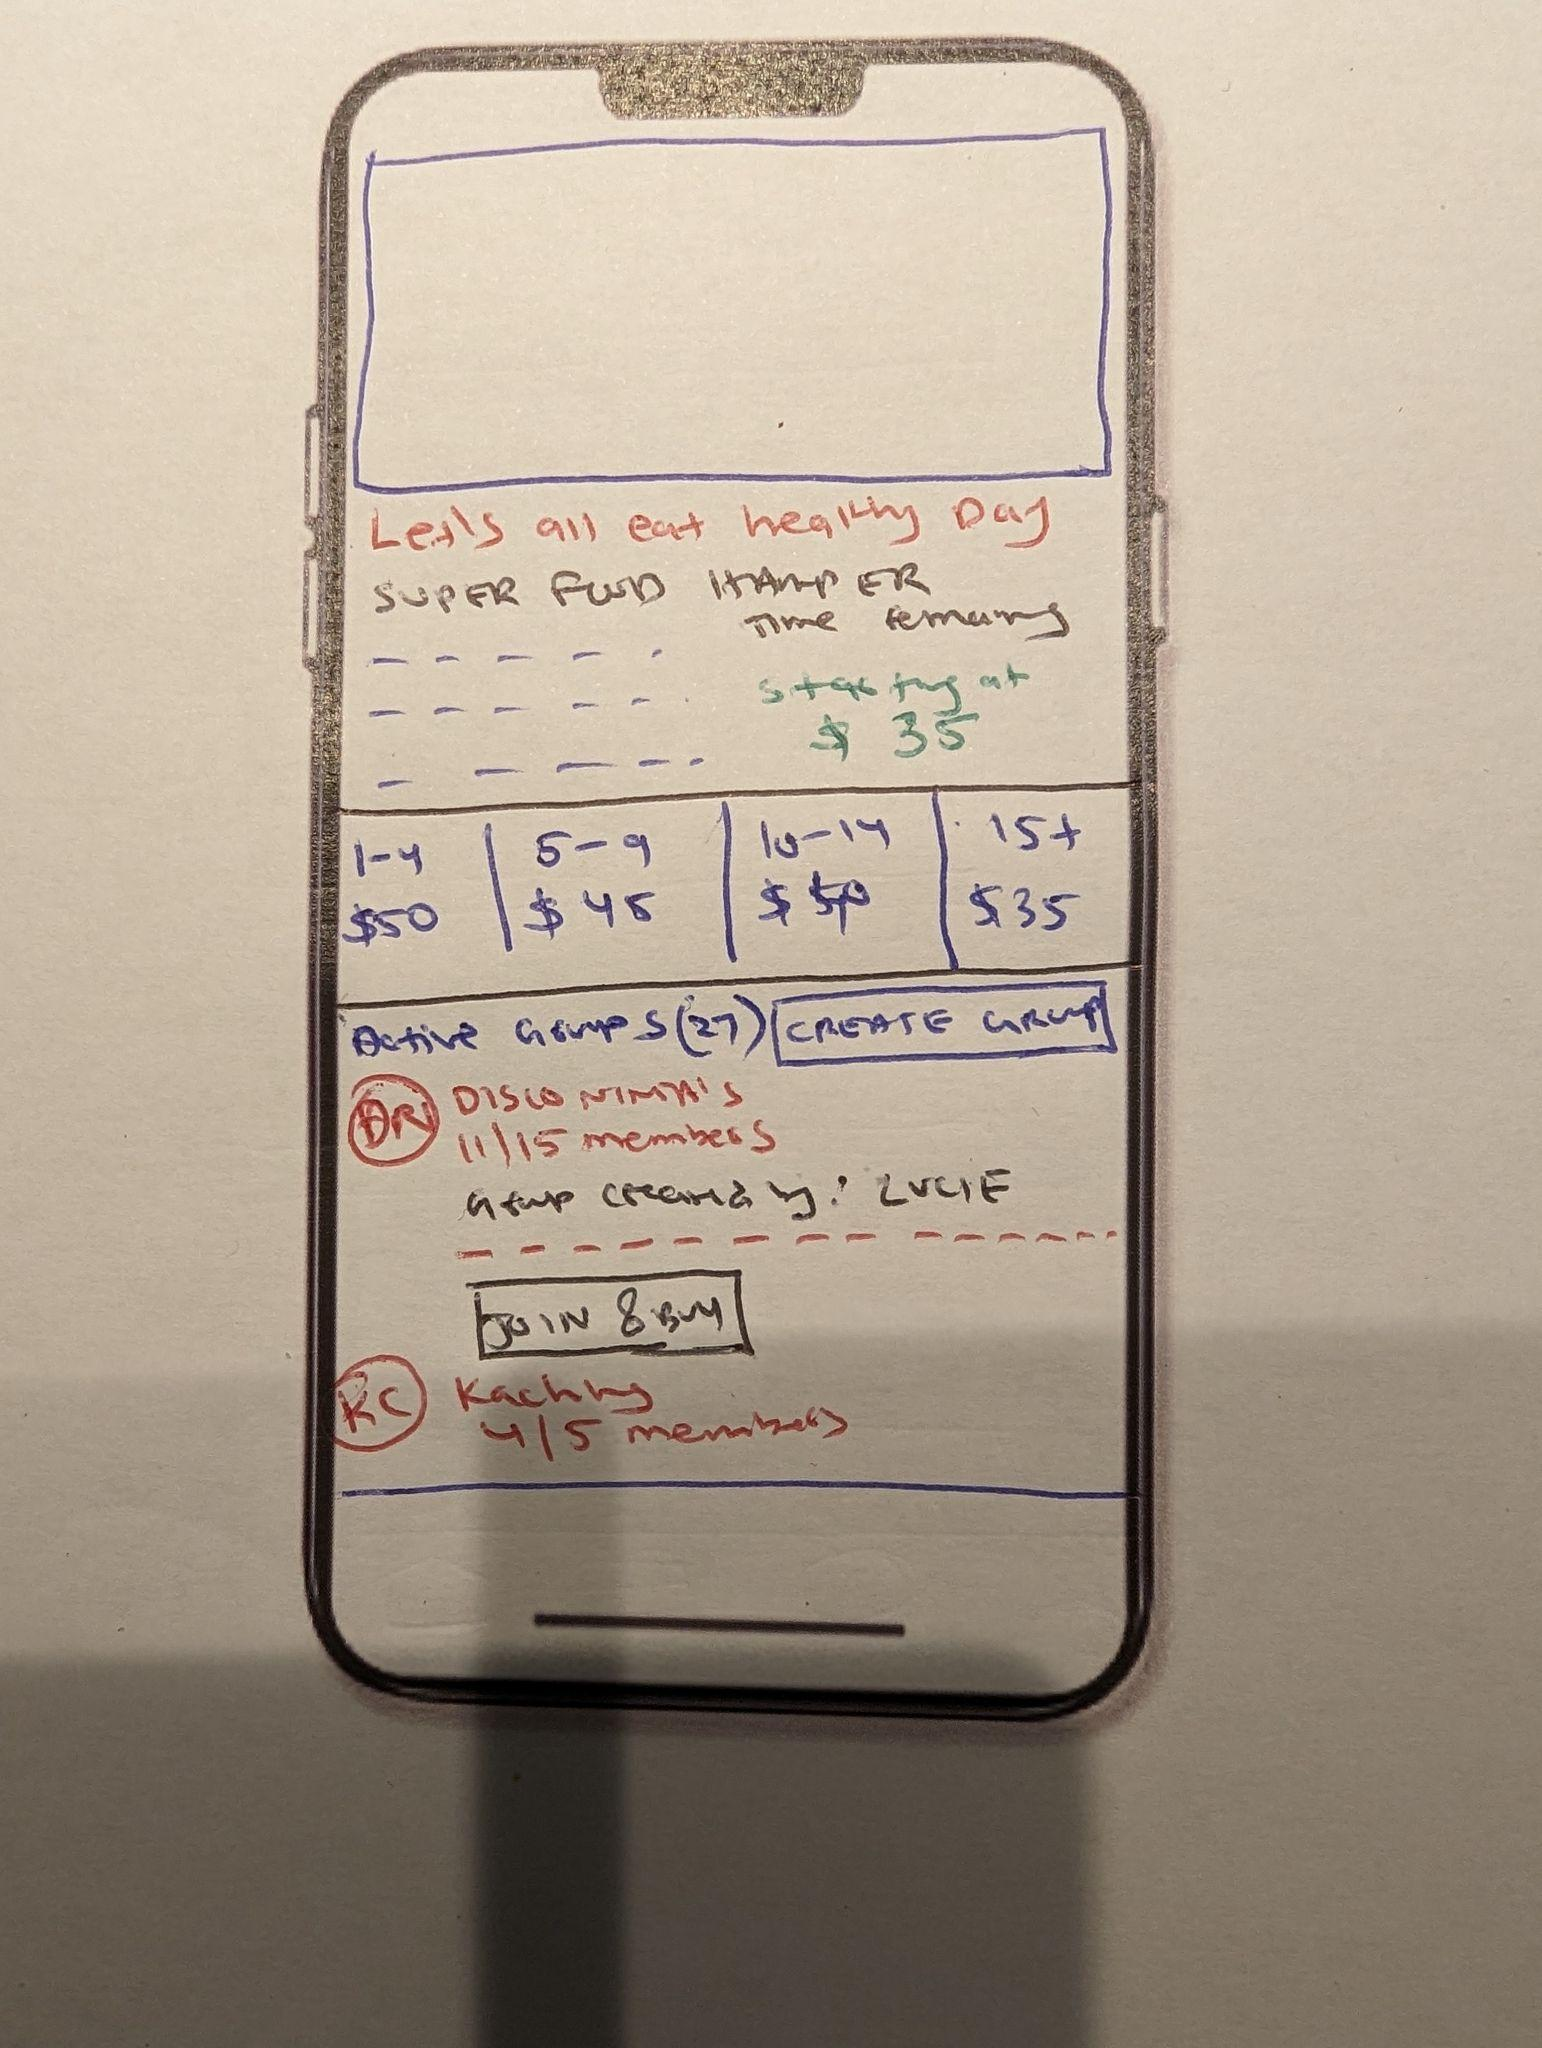 Let's all eat healthy Day
SUPER FOOD HAMPER
Time remaining
starting at
$ 35
1-4
$50
5-9
$ 45
10-14
$
15+
$35
Active Groups (27)
CREATE GROUP
DN
DISCO NINJA'S
11/15 members
Group created by: LUCIE
JOIN & BUY
KC
Kaching
4/5 members